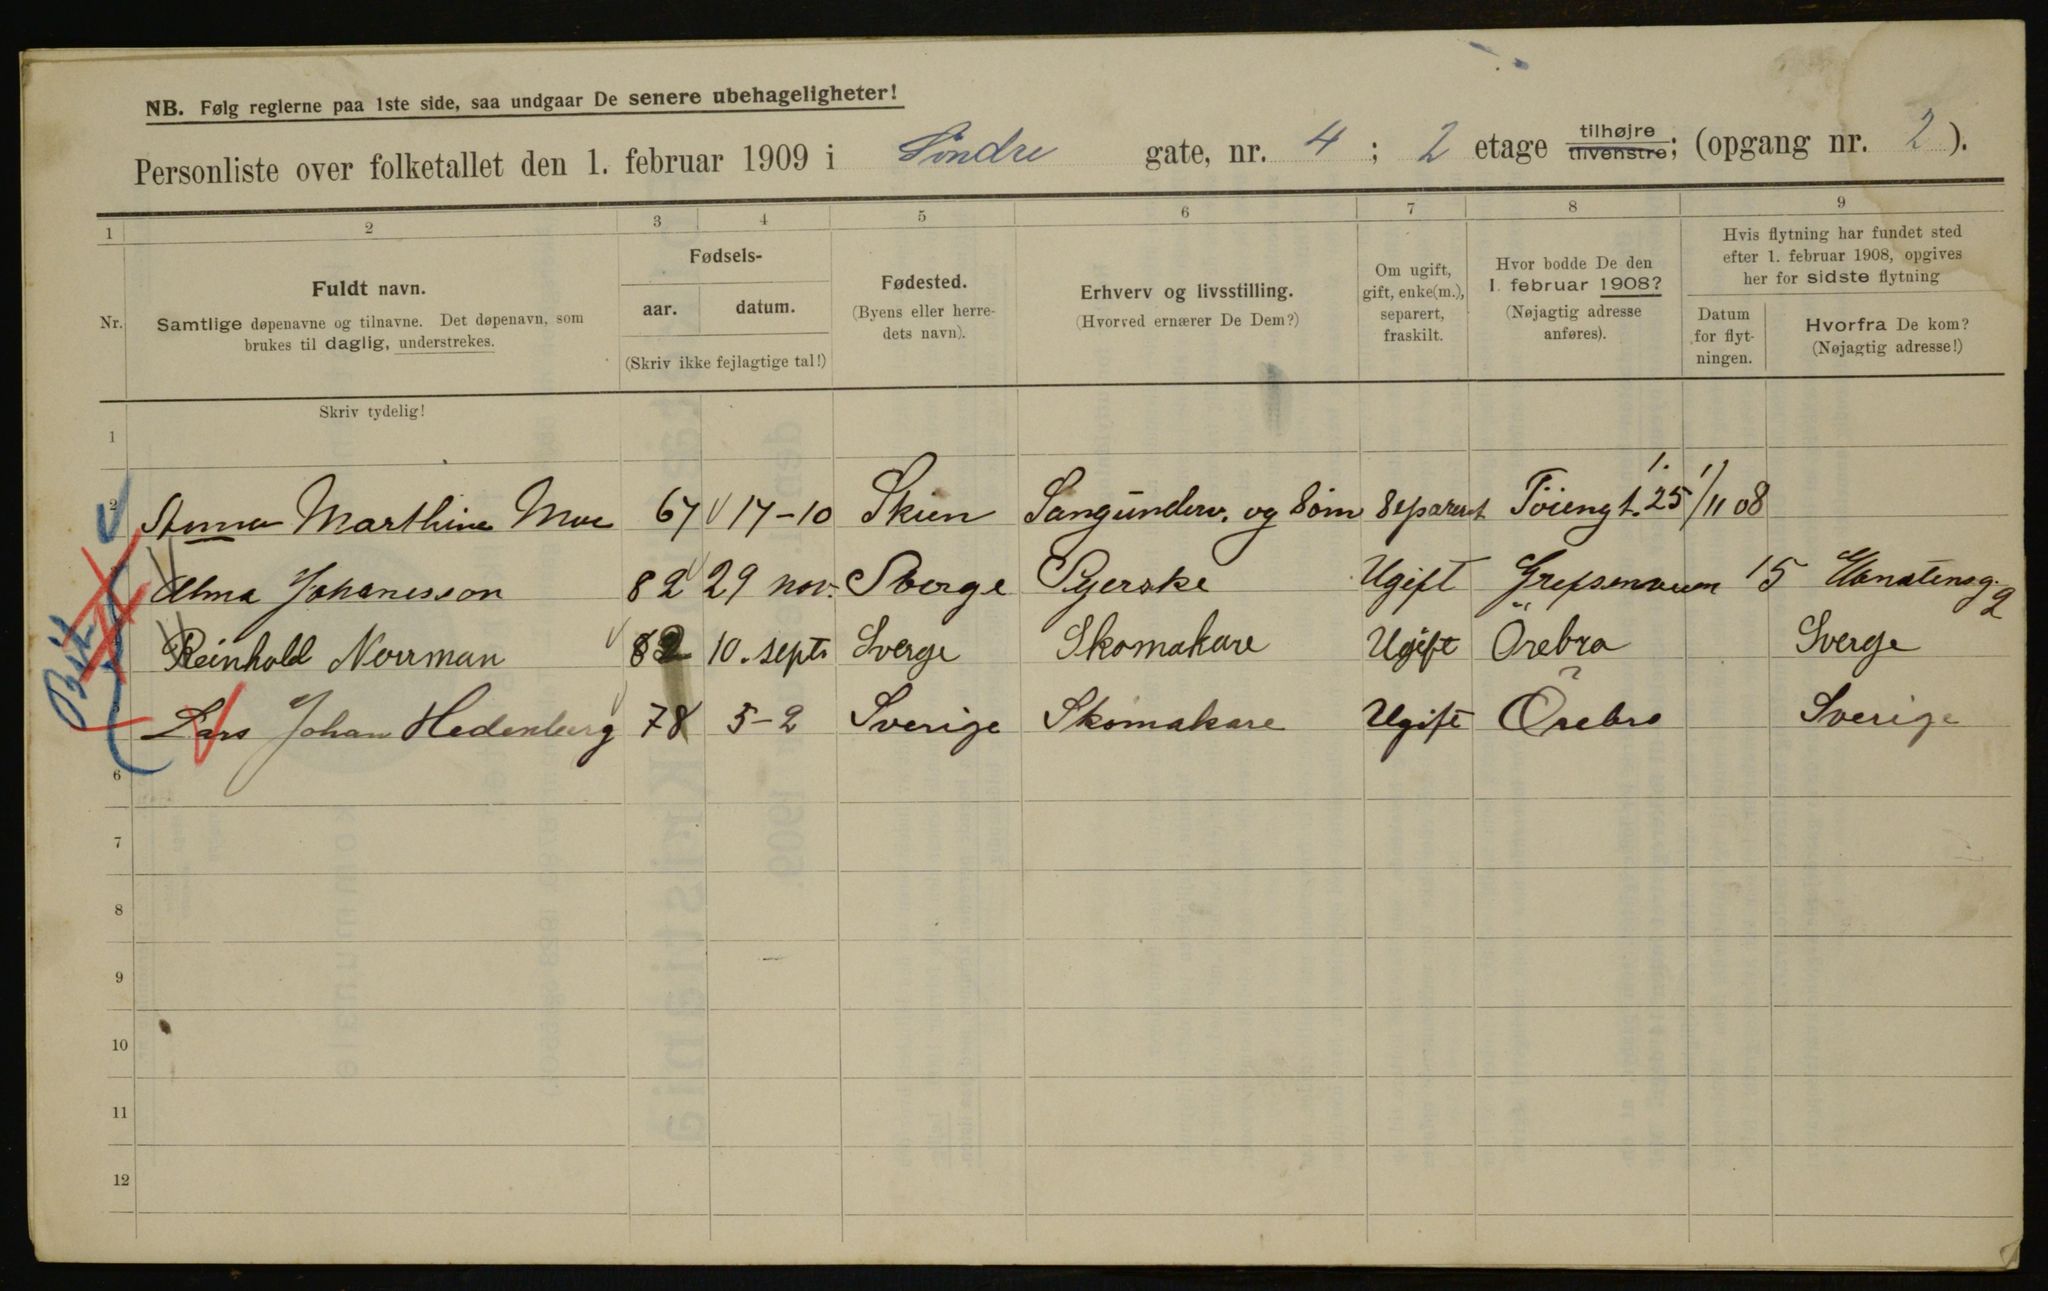 NB. Følg reglerne paa 1ste side, saa undgaar De senere ubehageligheter!
Personliste over folketallet den 1. februar 1909 i Söndre gate, nr. 4 ; 2 etage tilhøjre tilvenstre; (opgang nr. 2 ).
1 2 3 4 5 6 7 8 9
Nr. Fuldt navn. Samtlige døpenavne og tilnavne. Det døpenavn, som brukes til daglig, understrekes.
Fødsels-
aar. datum.
(Skriv ikke fejlagtige tal!)
Fødested. (Byens eller herredets navn).
Erhverv og livsstilling. (Hvorved ernærer De Dem?)
Om ugift, gift, enke(m.), separert, fraskilt.
Hvor bodde De den 1. februar 1908? (Nøjagtig adresse anføres).
Hvis flytning har fundet sted efter 1. februar 1908, opgives her for sidste flytning
Datum for flytningen.
Hvorfra De kom? (Nøjagtig adresse!)
Skriv tydelig!
1
2 Anna Marthine Moe 67 17-10 Skien Sangunderv. og Søm Separert Töiengt. 25 1/11 08
Alma Johanesson 82 29 nov. Sverge Syerske Ugift 15
Reinhold Norrman 82 10. sept. Sverge Skomakare Ugift Örebro Sverge
Lars Johan Hedenberg 78 5-2 Sverige Skomakare Ugift Örebro Sverige
6
7
8
9
10
11
12